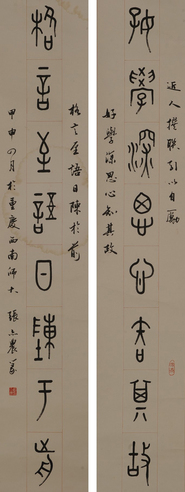 近人撰聯引以自勵
好學深思心知其故
好學深思心知其故
格言至語日陳於前
格言至語日陳于前
甲申四月於重慶西南師大 張農篆